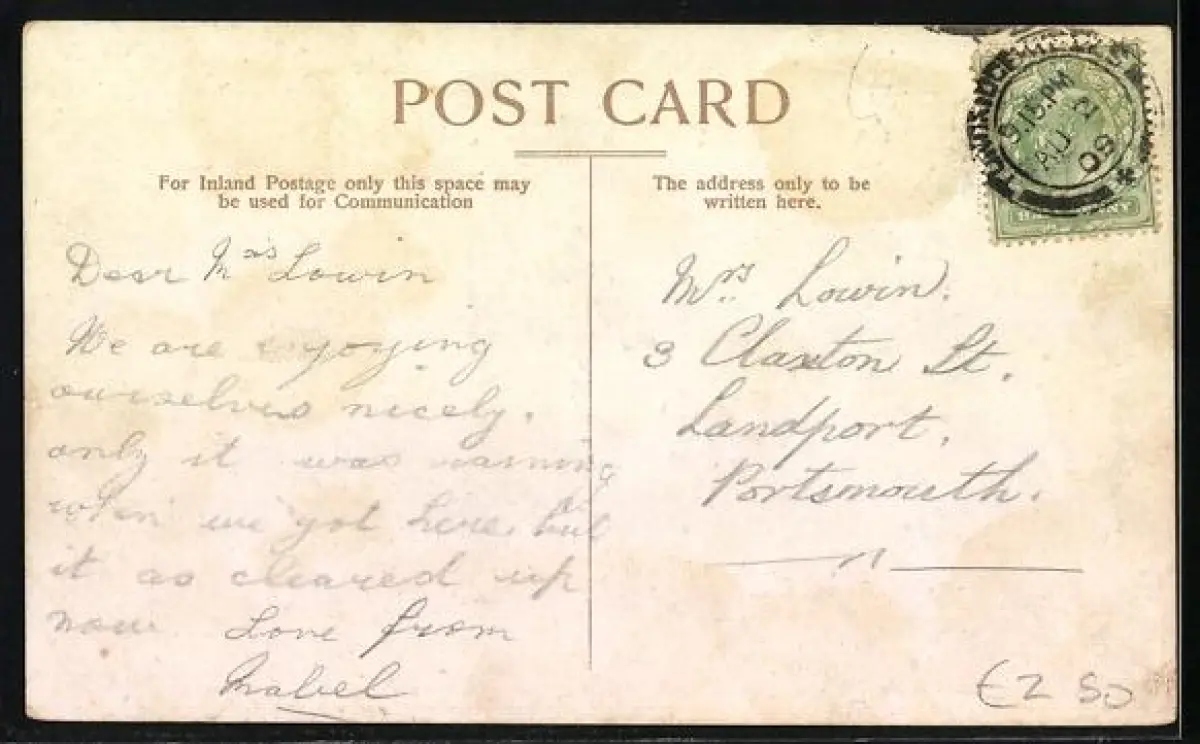 POST CARD
For Inland Postage only this space may
be used for Communication
The address only to be
written here.
TUNBRIDGE WELLS
9.15 PM
AU
09
HALFPENNY
Dear Mrs Lowin
We are enjoying
ourselves nicely.
only it was raining
when we got here. but
it as cleared up
now Love from
Mabel
Mrs. Lowin.
3 Claxton St.
Landport.
Portsmouth.
£2 50